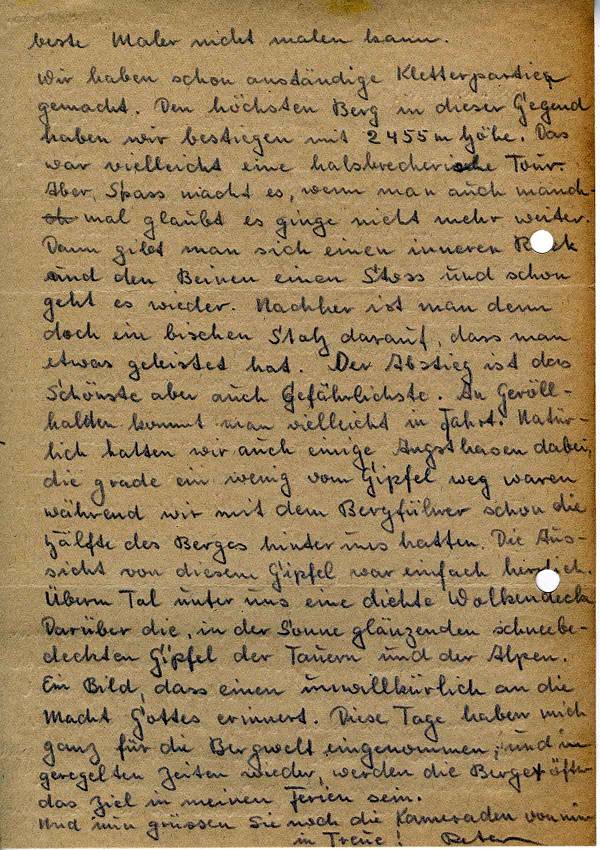 beste Maler nicht malen kann.
Wir haben schon anständige Kletterpartien
gemacht. Den höchsten Berg in dieser Gegend
haben wir bestiegen mit 2455m Höhe. Das
war vielleicht eine halsbrecherische Tour.
Aber, Spass macht es, wenn man auch manch-
mal glaubt es ginge nicht mehr weiter.
Dann gibt man sich einen inneren Ruck
und den Beinen einen Stoss und schon
geht es wieder. Nachher ist man denn
doch ein bischen Stolz darauf, dass man
etwas geleistet hat. Der Abstieg ist das
Schönste aber auch Gefährlichste. An Geröll-
halden kommt man vielleicht in Fahrt. Natür-
lich hatten wir auch einige Angsthasen dabei,
die grade ein wenig vom Gipfel weg waren
während wir mit dem Bergführer schon die
Hälfte des Berges hinter uns hatten. Die Aus-
sicht von diesem Gipfel war einfach herrlich.
Überm Tal unter uns eine dichte Wolkendeck
Darüber die, in der Sonne glänzenden schneebe-
deckten Gipfel der Tauern und der Alpen.
Ein Bild, dass einen unwillkürlich an die
Macht Gottes erinnert. Diese Tage haben mich
ganz für die Bergwelt eingenommen, und in
geregelten Zeiten wieder, werden die Berge öfter
das Ziel in meinen Ferien sein.
Und nun grüssen Sie noch die Kameraden von mir
in Treue! Peter